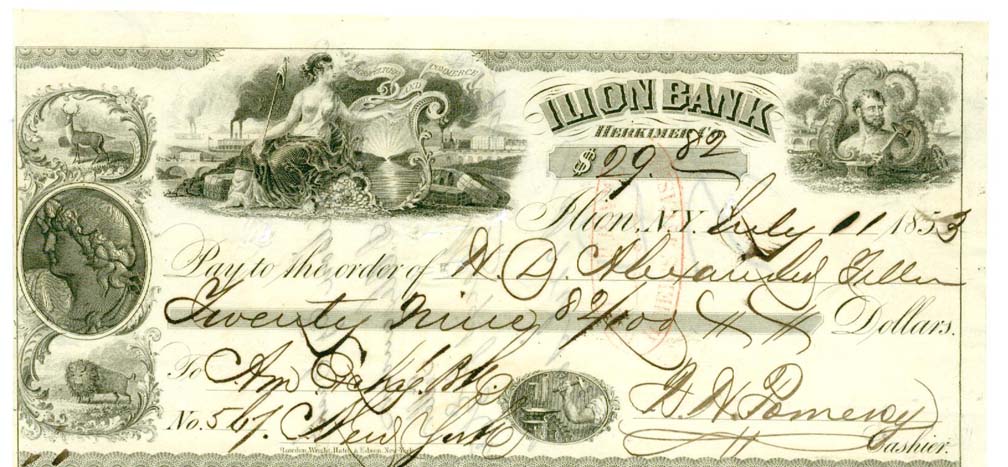 ENTERPRISE AND COMMERCE
ILION BANK
HERKIMER Co.
$ 29.82
Ilion, N.Y. July 11 1853
Pay to the order of W. D. Alexander Teller
Twenty Nine 82/100 Dollars.
To Am Exchg. Bk.
No. 567. New York
H. H. Pomeroy
Cashier.
Rawdon, Wright, Hatch & Edson, New York